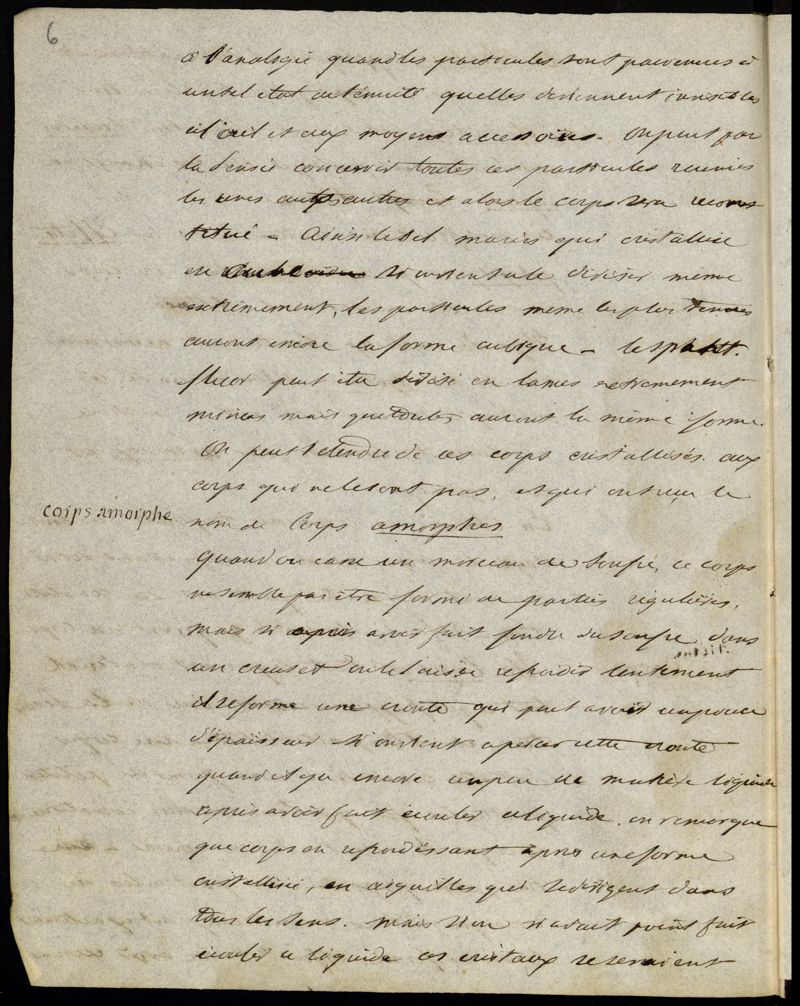 6
à l'analogie quand les particules sont parvenues à
un tel état de ténuité quelles deviennent invisibles
à l'œil et aux moyens accessoires. On peut par
la pensée concevoir toutes ces particules reunies
les unes aux autres et alors le corps sera recons
titué - Ainsi le Sel marin qui cristallise
en si on tente de le diviser même
extrêmement, les particules même les plus tenues
auront encore la forme cubique - le spath.
fluor peut être divisé en lames extremement
minces mais que toutes auront la même forme.
On peut s'étendre de ces corps cristallisés aux
corps qui ne le sont pas, et qui ont reçu le
corps amorphe
nom de Corps amorphes
quand on casse un morceau de soufre, ce corps
ne semble pas être formé de parties régulières,
mais si après avoir fait fondre du soufre dans
un creuset on le laisse refroidir lentement
il se forme une croute qui peut avoir un pouce
d'épaisseur si on vient a percer cette croute
quand il y a encore un peu de matière liquide
après avoir fait écouler ce liquide, on remarque
que corps en refroidissant a pris une forme
cristalline, en aiguilles qui se dirigent dans
tous les sens. mais si on n'avait point fait
écouler ce liquide ces cristaux se seraient